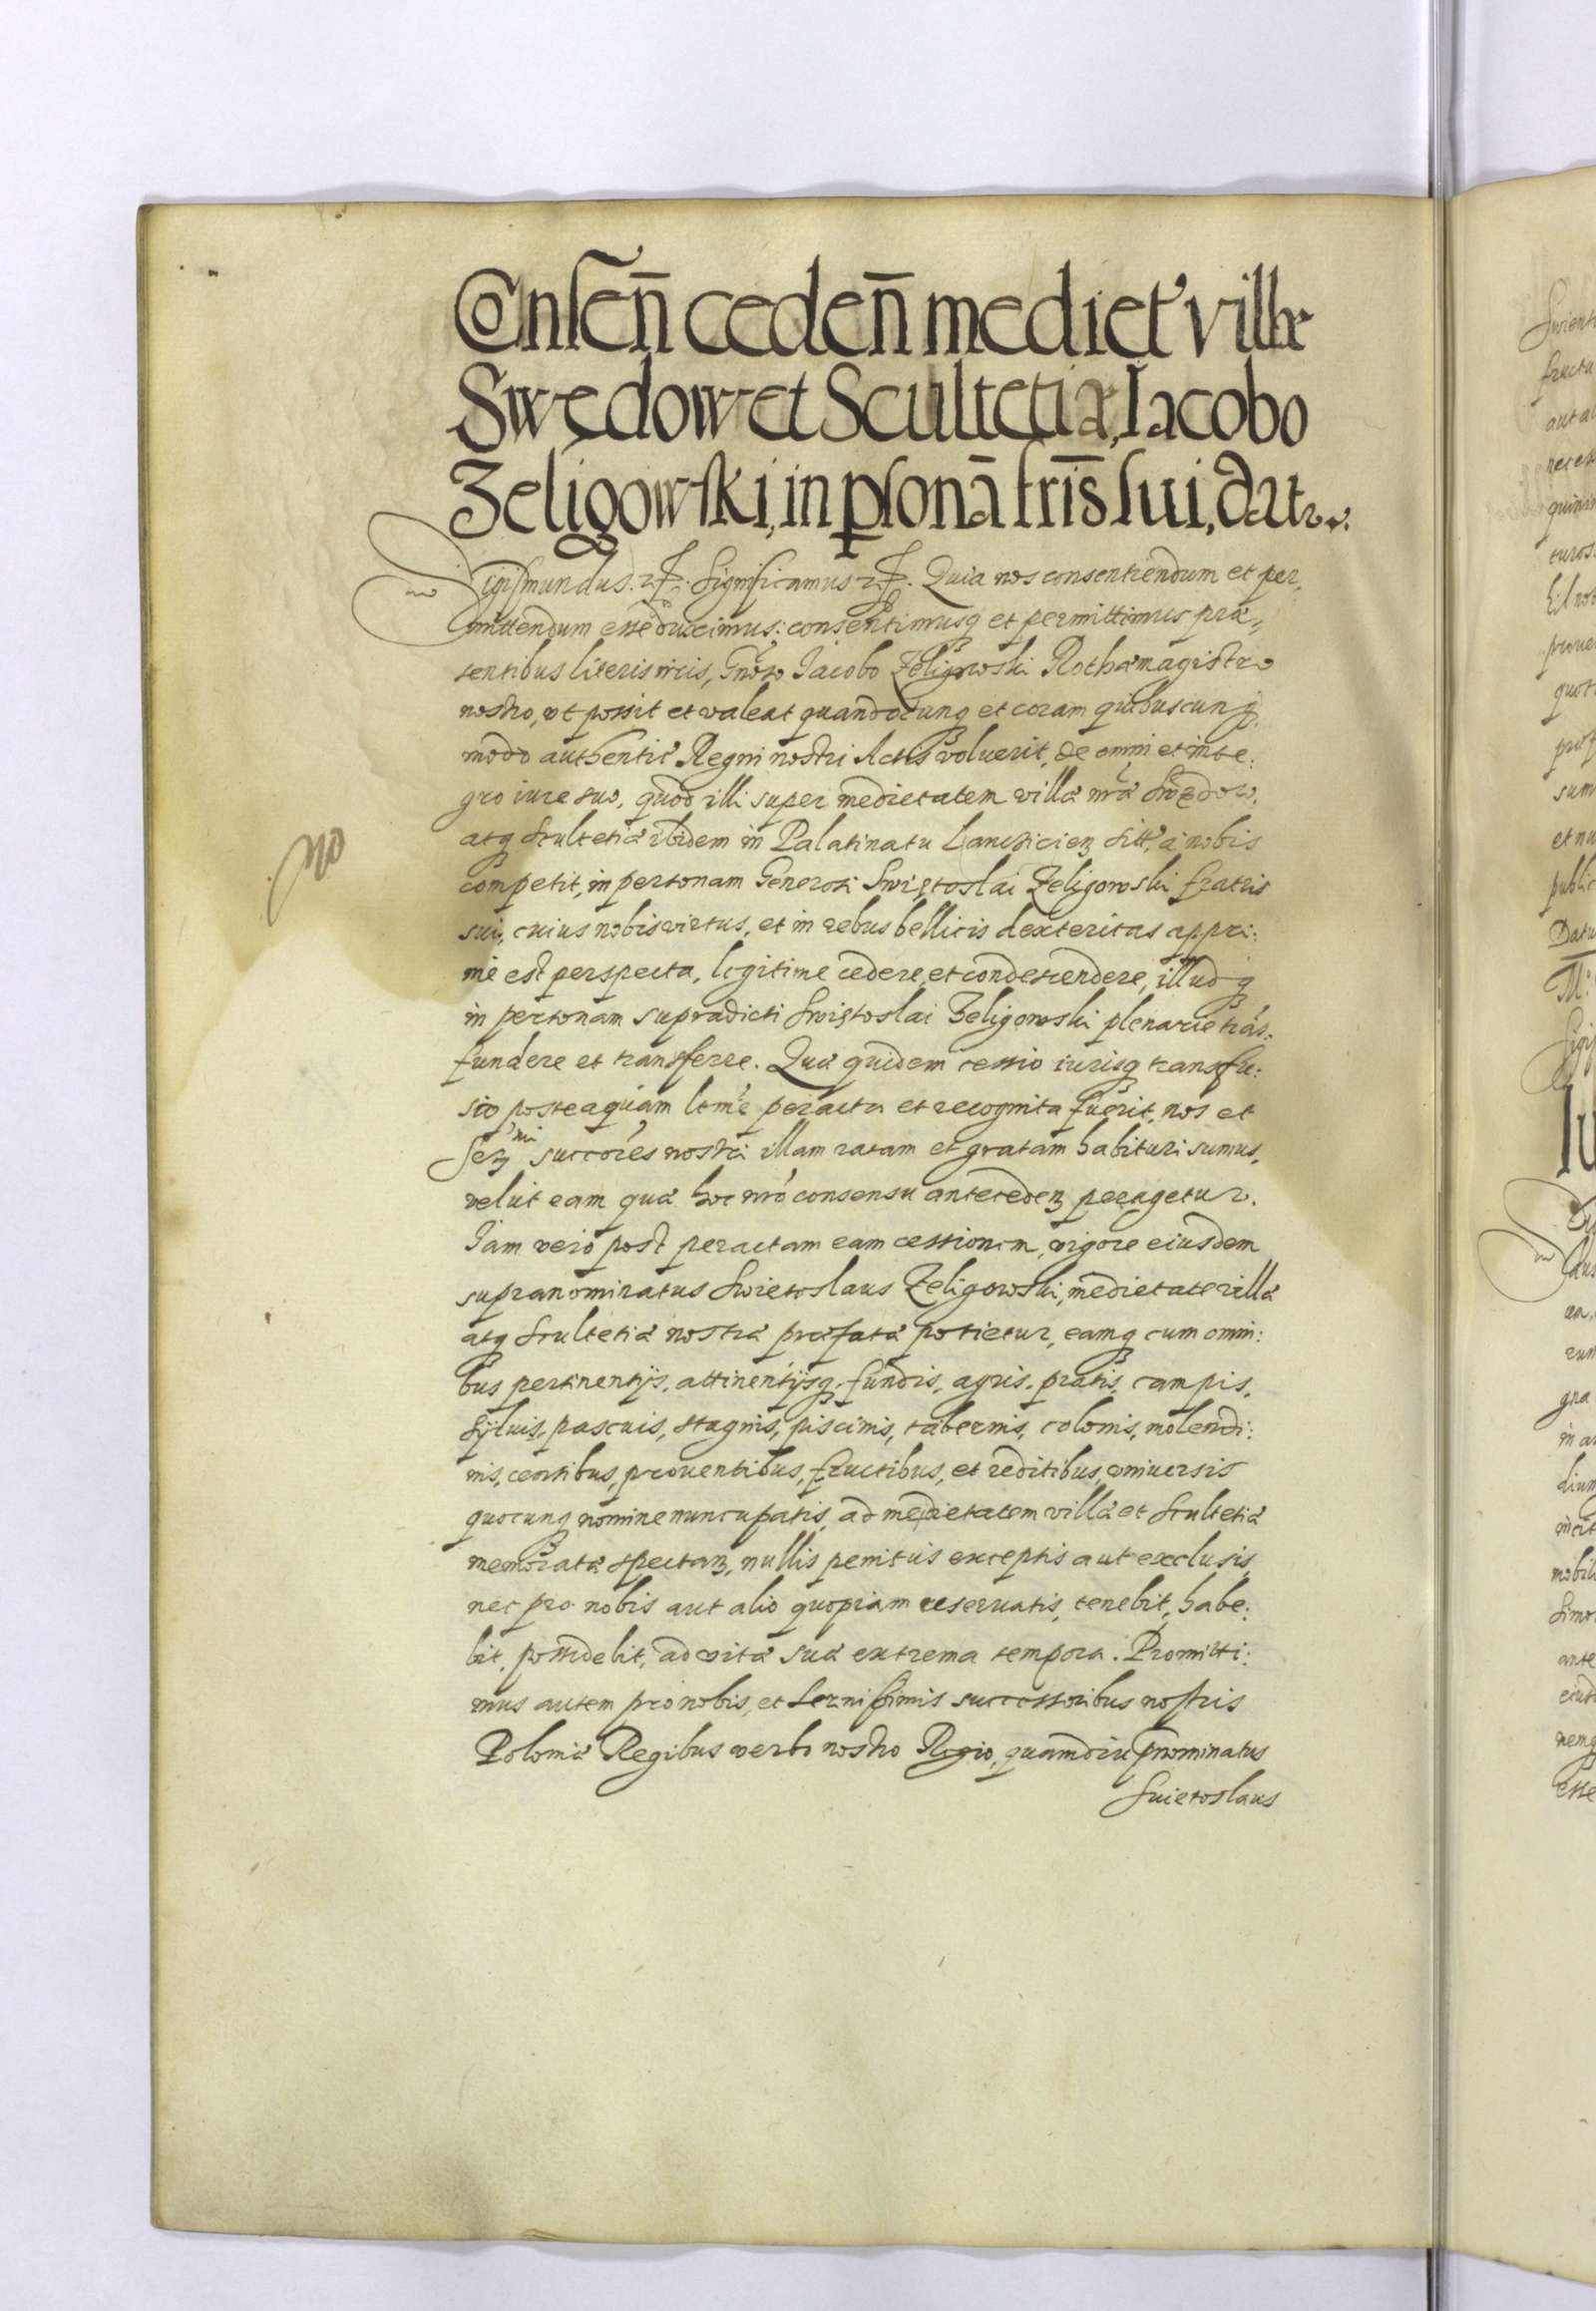 Consen̄ ceden̄ mediet' villæ
Swędow et Scultetiæ, Iacobo
Zeligowski, in psonā fris̄ sui, dat.
Sigismundus. etc. Significamus etc. Quia nos consentiendum et per,
mittendum esse duximus: consentimusq et permittimus præ,,
sentibus literis nris, Gnoso Jacobo Zeligowski Rothæmagistro
nostro, vt possit et valeat quandocunq et coram quibuscunq
modo authenticæ Regni nostri Actis voluerit, de omni et inte:
gro iure suo, quod illi super medietatem villæ nræ Swędow,
atq Scultetiæ ibidem in Palatinatu Lancicien sitt, à nobis
competit, in personam Generosi Swiętoslai Zeligowski fratris
sui, cuius nobis virtus, et in rebus bellicis dexteritas appri:
mè est perspecta, legitime cedere, et condescendere, illudq
in personam supradicti Swiętoslai Zeligowski plenarie trãs:
fundere et transferre. Quæ quidem cessio iurisq transfu:
sio posteaquam ltmè peracta et recognita fuerit, nos et
Serz mi succores nostri illam ratam et gratam habituri sumus,
velut eam quæ hoc nro consensu anteceden peragetur.
Jam vero post peractam eam cessionem, vigore eiusdem
supranominatus Swietoslaus Zeligowski, medietate villæ
atq Scultetiæ nostræ præfatæ potietur, eamq cum omni:
bus pertinentijs, attinentijsq, fundis, agris, pratis, campis,
sijluis, pascuis, stagnis, piscinis, tabernis, colonis, molendi:
nis, censibus, prouentibus, fructibus, et reditibus, vniuersis
quocunq nomine nuncupatis, ad medietatem villæ et Scultetiæ
memoratæ spectan, nullis penitus exceptis aut exclusis,
nec pro nobis aut alio quopiam reseruatis, tenebit, habe:
bit, possidebit, ad vitæ suæ extrema tempora. Promitti:
mus autem pro nobis, et Sernissimis successoribus nostris
Poloniæ Regibus verbo nostro Regio, quamdiu pnominatus
Swietoslaus